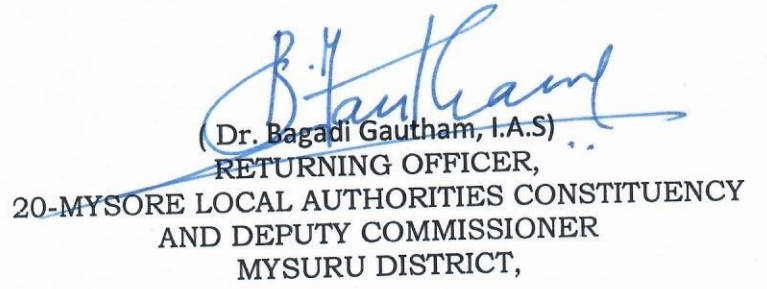 B.Gautham
( Dr. Bagadi Gautham, I.A.S)
RETURNING OFFICER,
20-MYSORE LOCAL AUTHORITIES CONSTITUENCY
AND DEPUTY COMMISSIONER
MYSURU DISTRICT,